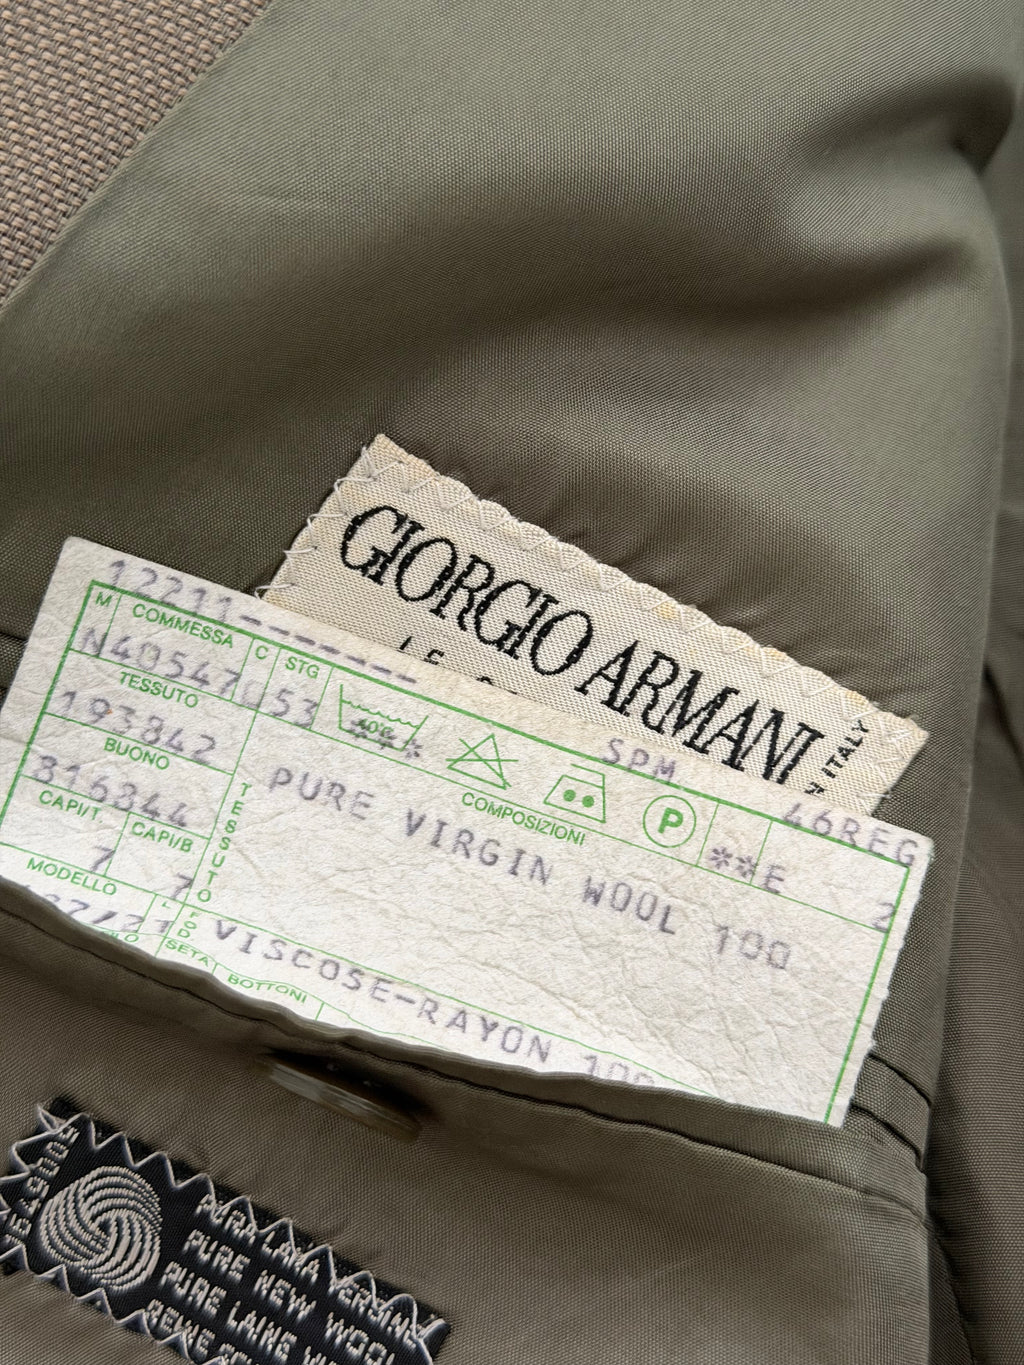 GIORGIO ARMANI
LE
ITALY
12211-------
M COMMESSA C STG
N40547 53
40° *** SPM **E 46REG
TESSUTO
193842
BUONO
316344
CAPI/T. CAPI/B
7 7
MODELLO
TESSUTO
COMPOSIZIONI
P
2
PURE VIRGIN WOOL 100
FOD
VISCOSE-RAYON 100
SETA BOTTONI
PURA LANA VERGINE
PURE NEW WOOL
PURE LAINE